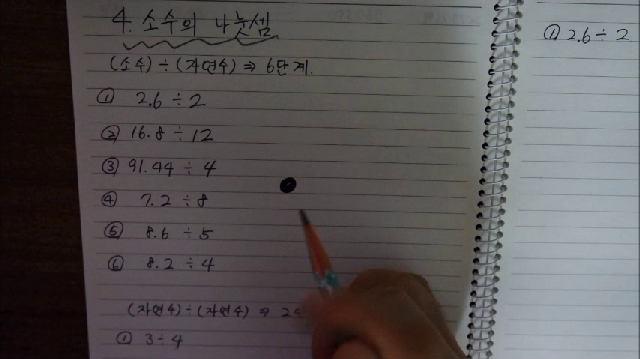 4. 소수의 나눗셈
(소수) ÷ (자연수) ⇒ 6단계.
① 2.6 ÷ 2
② 16.8 ÷ 12
③ 91.44 ÷ 4
④ 7.2 ÷ 8
⑤ 8.6 ÷ 5
⑥ 8.2 ÷ 4
(자연수) ÷ (자연수) ⇒ 2
① 3 ÷ 4
① 2.6 ÷ 2